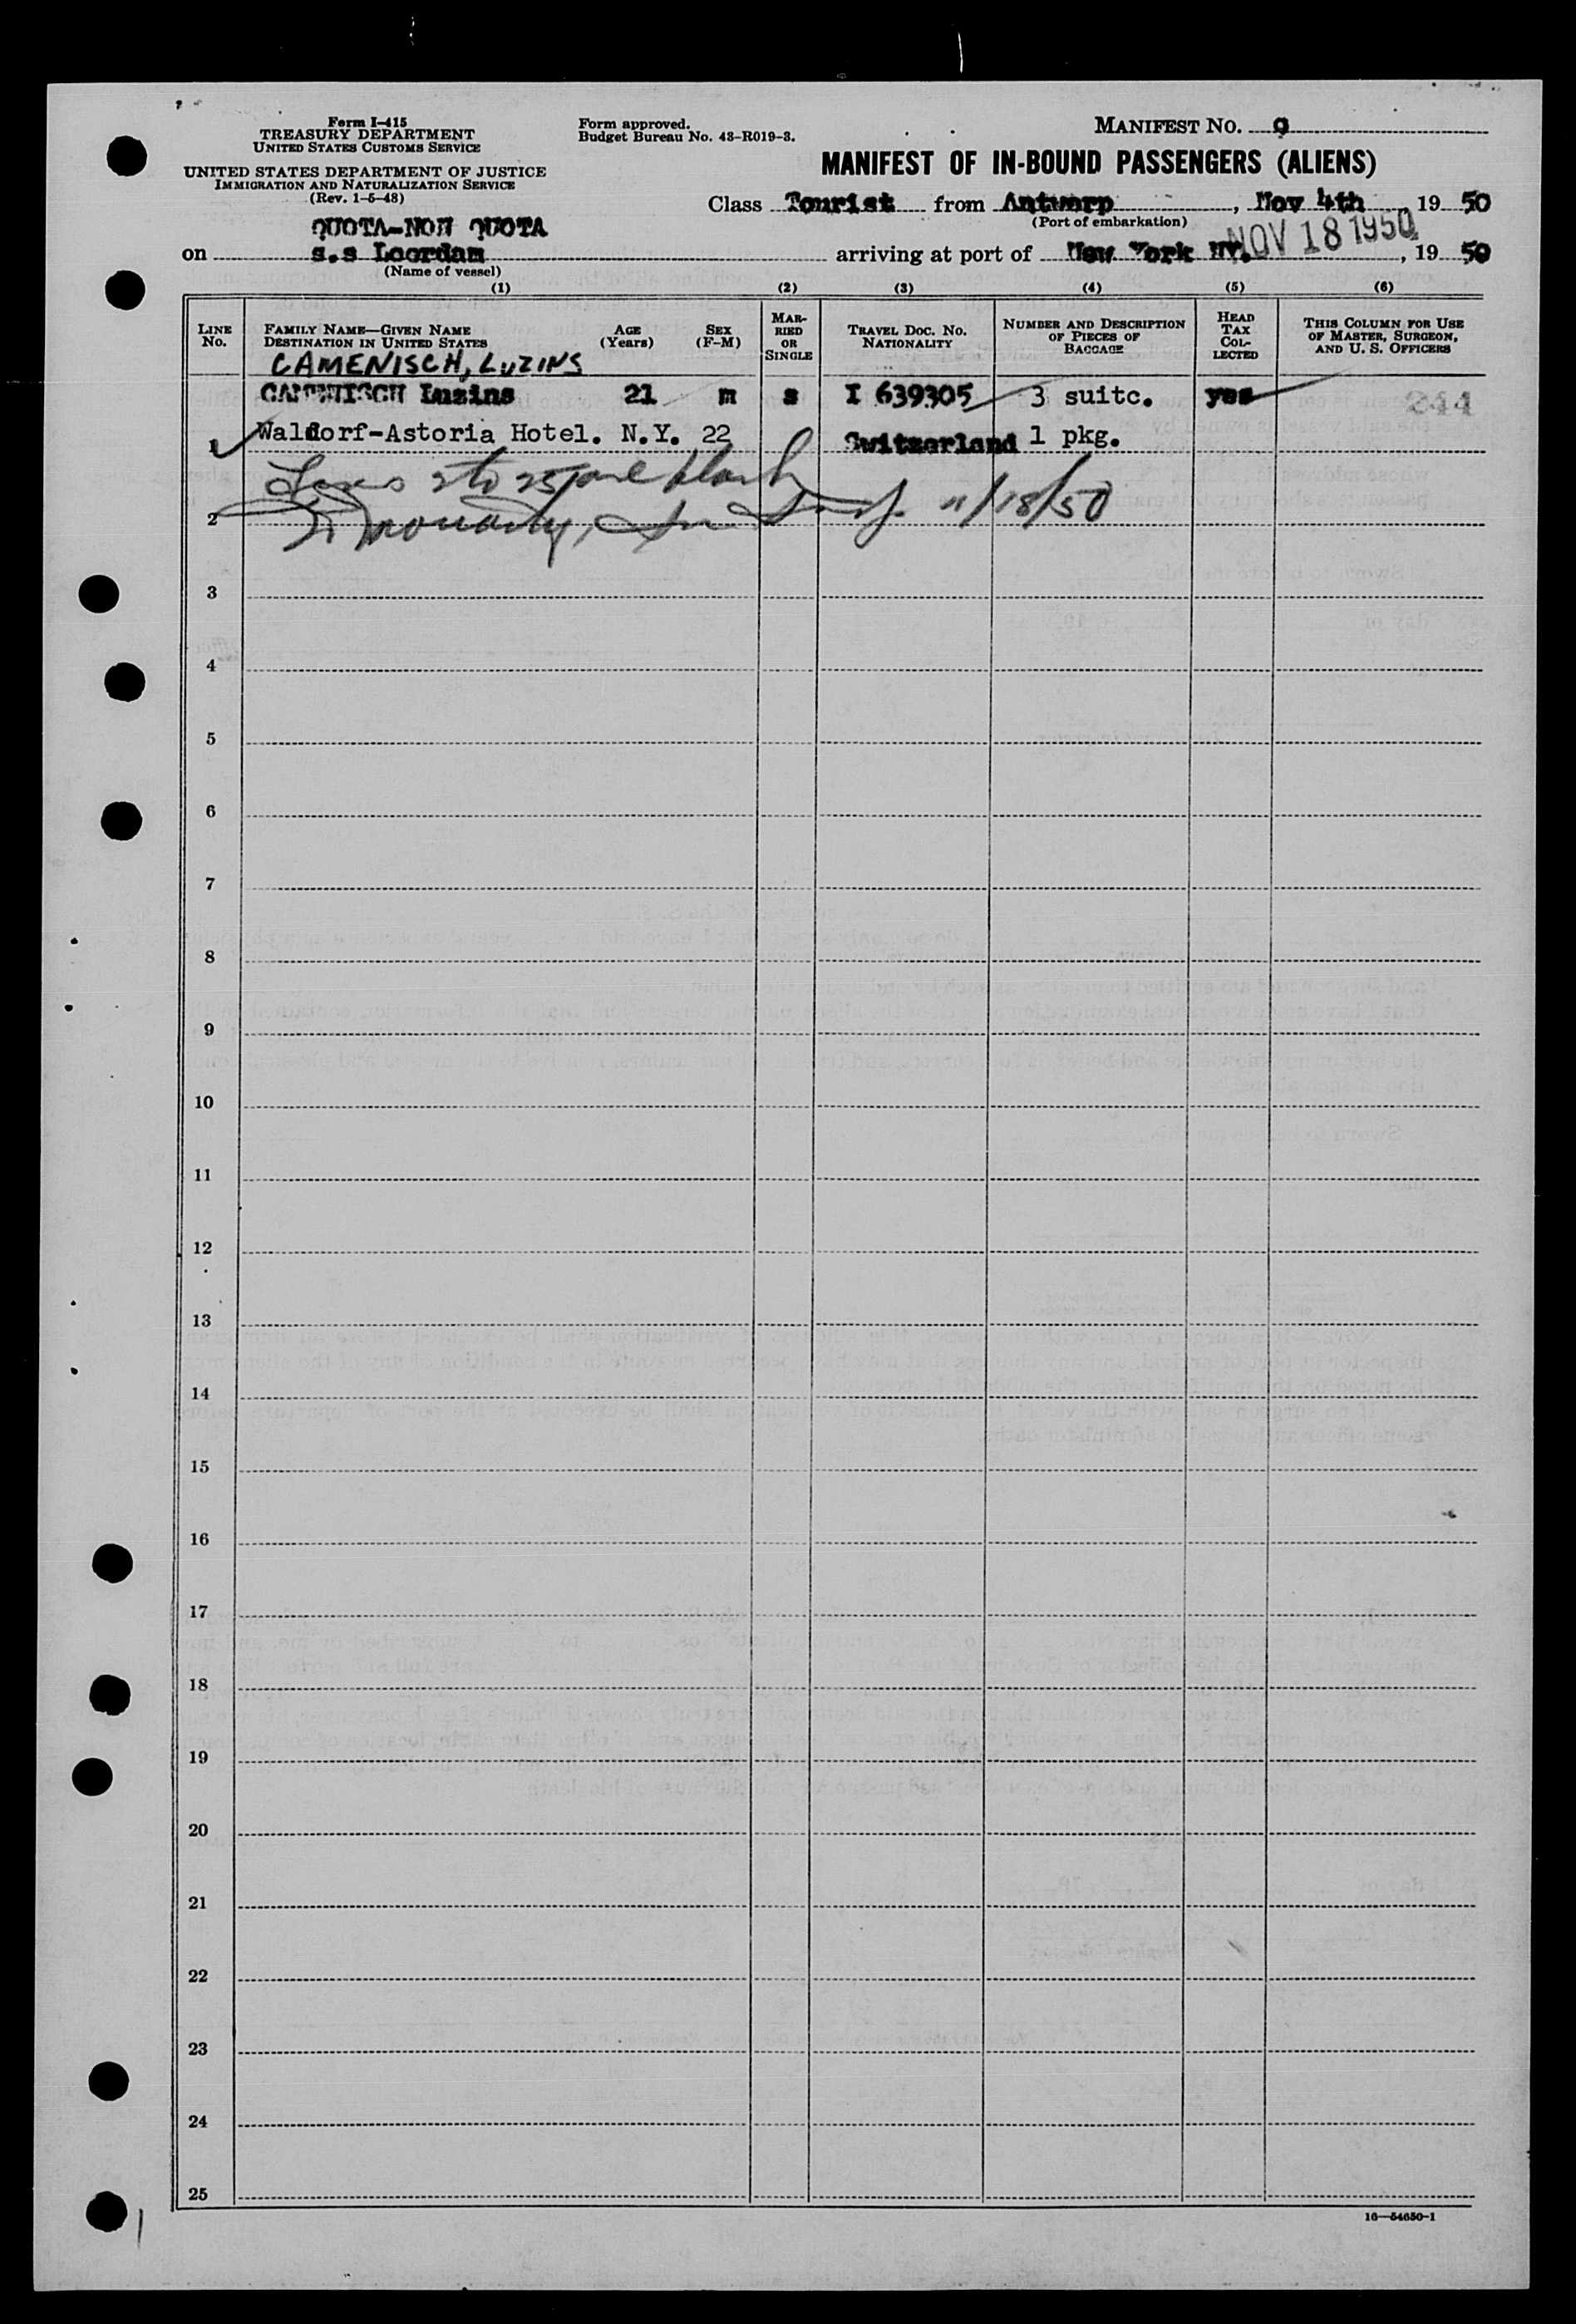 Form I-415
TREASURY DEPARTMENT
UNITED STATES CUSTOMS SERVICE
UNITED STATES DEPARTMENT OF JUSTICE
IMMIGRATION AND NATURALIZATION SERVICE
(Rev. 1-5-48)
Form approved.
Budget Bureau No. 43-R019-3.
MANIFEST NO. 9
MANIFEST OF IN-BOUND PASSENGERS (ALIENS)
Class Tourist from Antwerp, Nov 4th 19 50
(Port of embarkation)
QUOTA-NON QUOTA
on s.s Loordam arriving at port of New York NY. NOV 18 1950, 19 50
(Name of vessel)
(1) (2) (3) (4) (5) (6)
LINE No. FAMILY NAME—GIVEN NAME DESTINATION IN UNITED STATES AGE (Years) SEX (F-M) MARRIED OR SINGLE TRAVEL DOC. NO. NATIONALITY NUMBER AND DESCRIPTION OF PIECES OF BAGGAGE HEAD TAX COLLECTED THIS COLUMN FOR USE OF MASTER, SURGEON, AND U. S. OFFICERS
CAMENISCH, LUZINS
CAMENISCH Luzins 21 m s I 639305 3 suitc. yes 244
1 Waldorf-Astoria Hotel. N.Y. 22 Switzerland 1 pkg.
Lines 2 to 25
2 11/18/50
3
4
5
6
7
8
9
10
11
12
13
14
15
16
17
18
19
20
21
22
23
24
25
16—54650-1